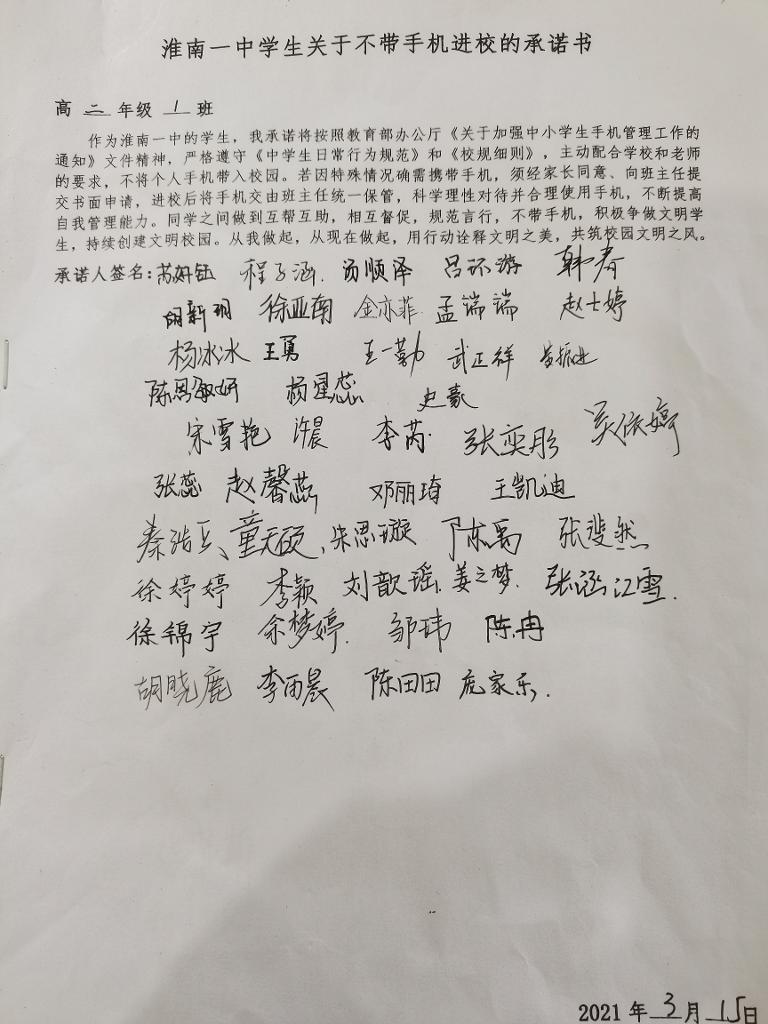 淮南一中学生关于不带手机进校的承诺书
高 二 年级 1 班
作为淮南一中的学生，我承诺将按照教育部办公厅《关于加强中小学生手机管理工作的
通知》文件精神，严格遵守《中学生日常行为规范》和《校规细则》，主动配合学校和老师
的要求，不将个人手机带入校园。若因特殊情况确需携带手机，须经家长同意、向班主任提
交书面申请，进校后将手机交由班主任统一保管，科学理性对待并合理使用手机，不断提高
自我管理能力。同学之间做到互帮互助，相互督促，规范言行，不带手机，积极争做文明学
生，持续创建文明校园。从我做起，从现在做起，用行动诠释文明之美，共筑校园文明之风。
承诺人签名： 程子涵. 汤顺泽 吕环游 韩春
胡新玥 徐亚南 金亦菲 孟端端 赵士婷
杨冰冰 王勇 王一勤 武正祥
陈思敏妍 杨星蕊 史豪
宋雪艳 许晨 李芮. 张奕彤 吴依婷
张蕊 赵馨蕊 邓丽琦 王凯迪
童天硕, 朱思璇 陈禹 张斐然
徐婷婷 李颖 刘歆瑶. 姜之梦. 张涵 江雪.
徐锦宇 余梦婷. 邹玮 陈冉
胡晓鹿 李雨晨 陈田田 庞家乐.
2021 年 3 月 15 日